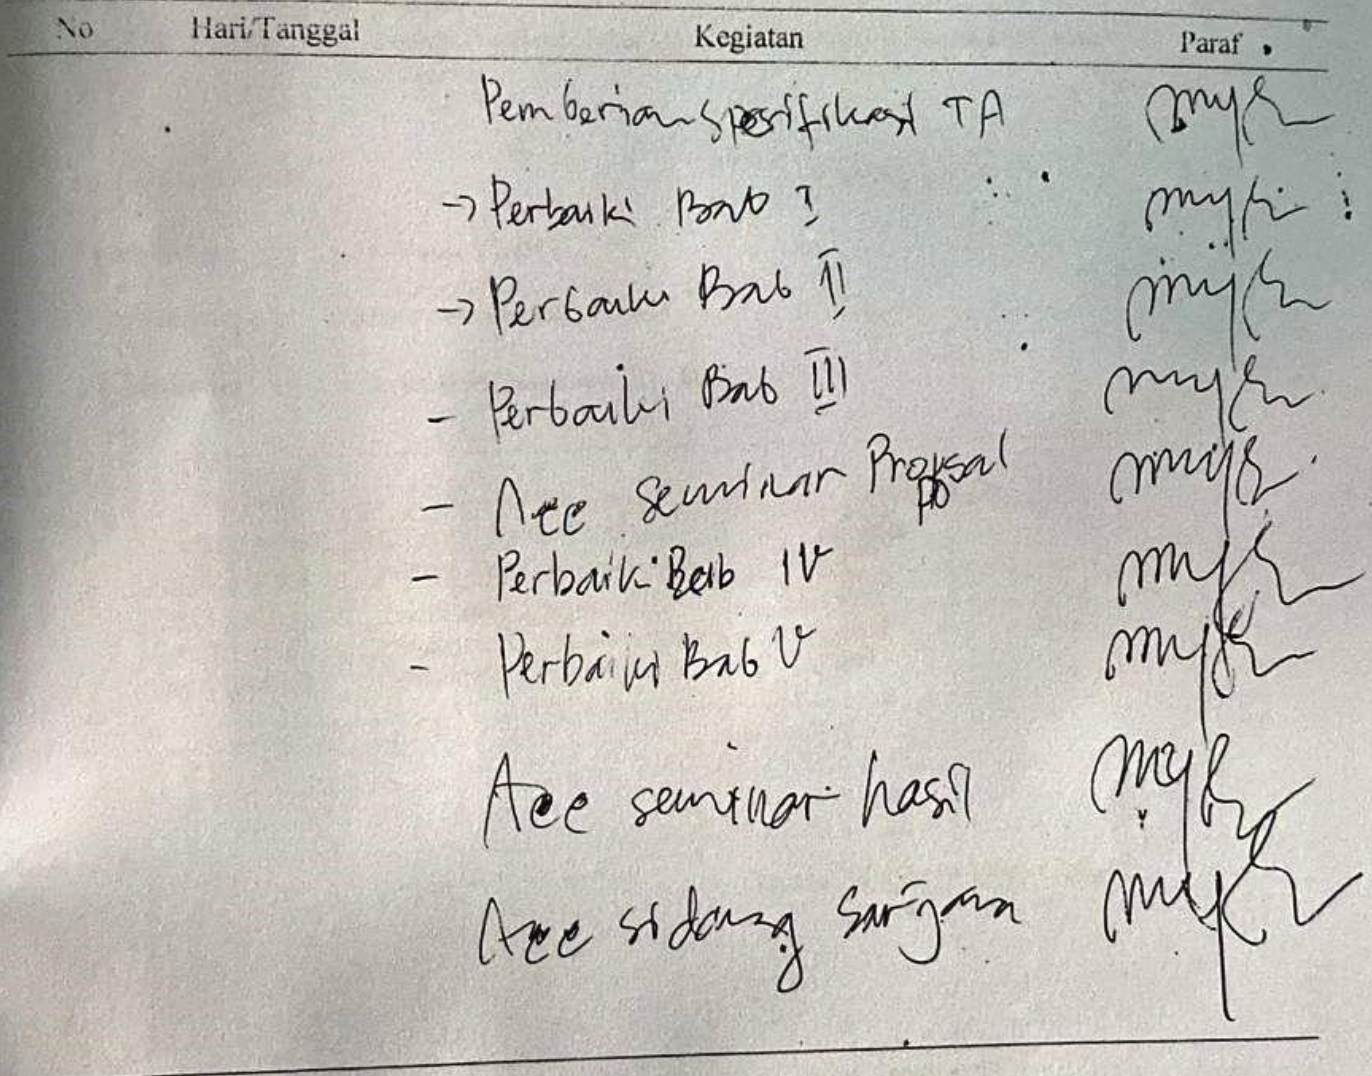 No Hari/Tanggal Kegiatan Paraf
Pemberian spesifikasi TA
→ Perbaiki Bab I
→ Perbaiki Bab II
- Perbaiki Bab III
- Acc seminar Proposal
- Perbaiki Bab IV
- Perbaiki Bab V
Acc seminar hasil
Acc sidang sarjana